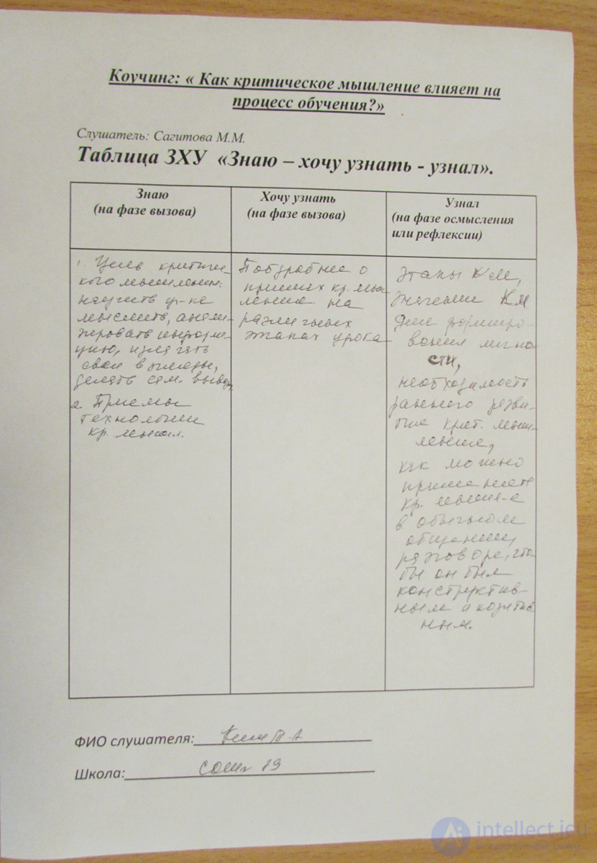 Коучинг: « Как критическое мышление влияет на
процесс обучения?»
Слушатель: Сагитова М.М.
Таблица ЗХУ «Знаю – хочу узнать - узнал».
Знаю
(на фазе вызова)
Хочу узнать
(на фазе вызова)
Узнал
(на фазе осмысления
или рефлексии)
1. Цель критичес-
кого мышления:
научить уч-ся
мыслить, анали-
зировать информа-
цию, излагать
свои взгляды,
делать сам. вывод
2. Приемы
технологии
кр. мышл.
Подробнее о
приемах кр. мы-
шления на
различных
этапах урока
Этапы КМ,
Значение КМ
для формиро-
вания лично
сти,
необходимость
раннего разви-
тия крит. мыш-
ления,
как можно
применять
кр. мышл-е
в обычном
общении,
разговоре, что
бы он был
конструктив-
ным и позитив
ным.
ФИО слушателя:
Школа: сош 19
intellect.icu